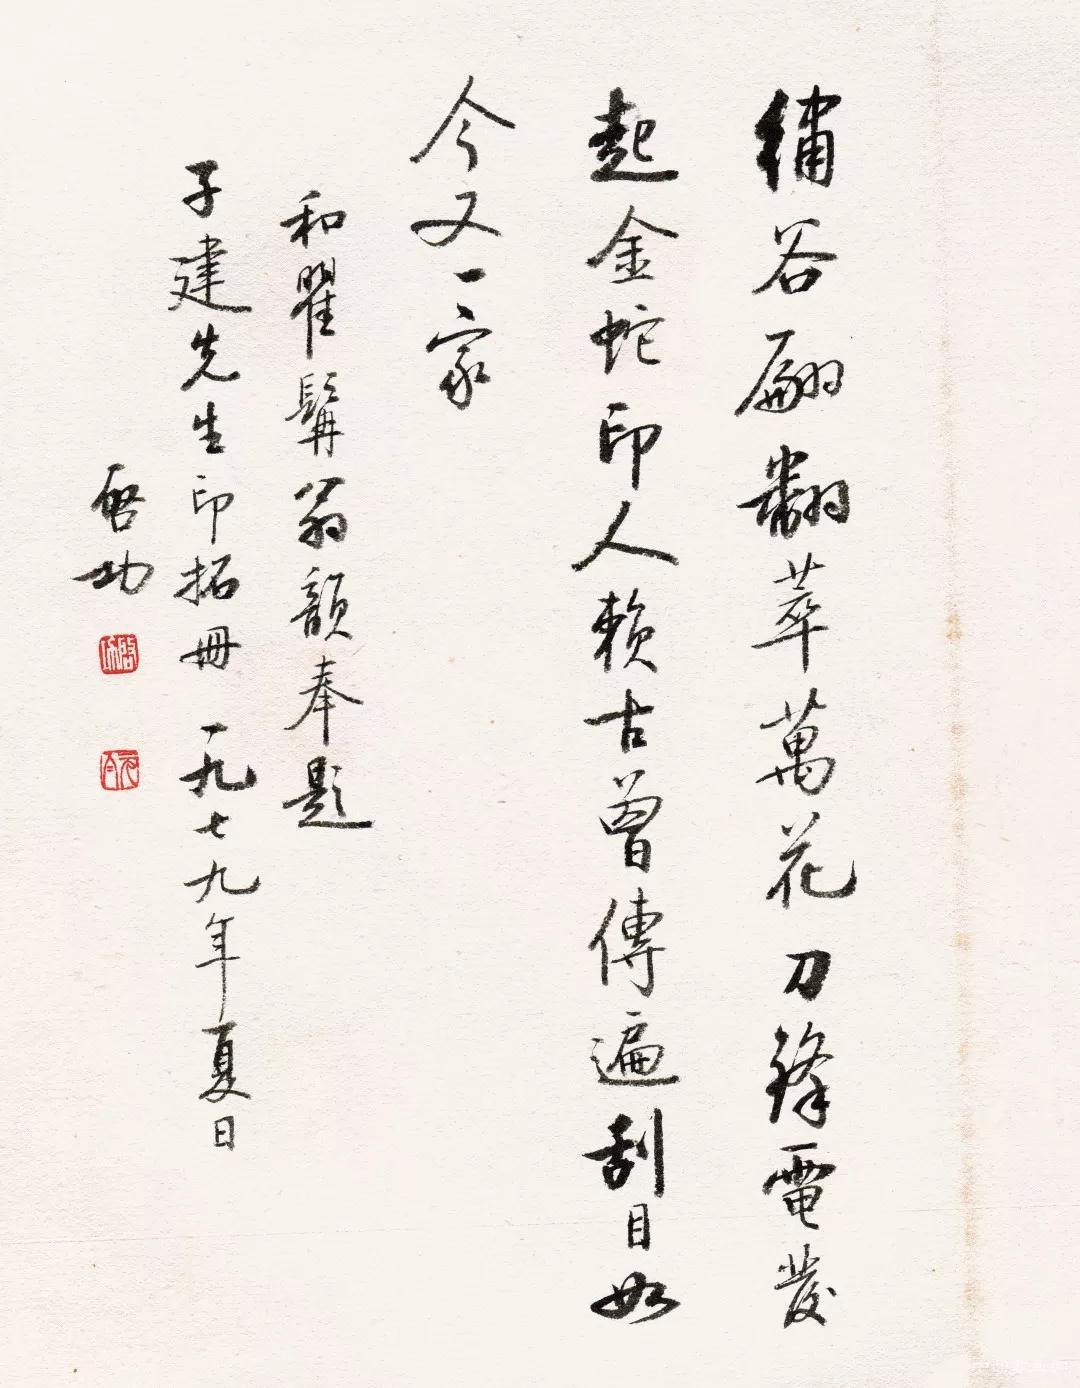 繡谷翩翻萃萬花刀鋒電發
起金蛇印人賴古曾傳遍刮目如
今又一家
和瞿髯翁韻奉題
子建先生印拓冊 一九七九年夏日
啓功
啓功
元白